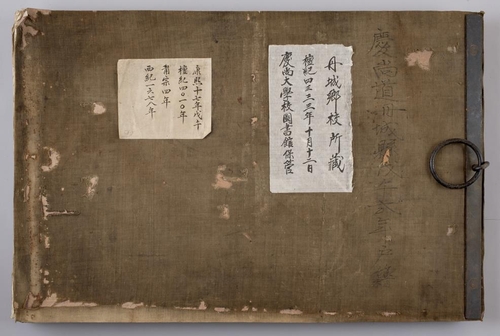 慶尚道丹城
丹城鄉校所藏
檀紀四三三三年十月十三日
慶尚大學校圖書館保管
康熙十七年戊午
檀紀四〇一〇年
肅宗四年
西紀一六七八年